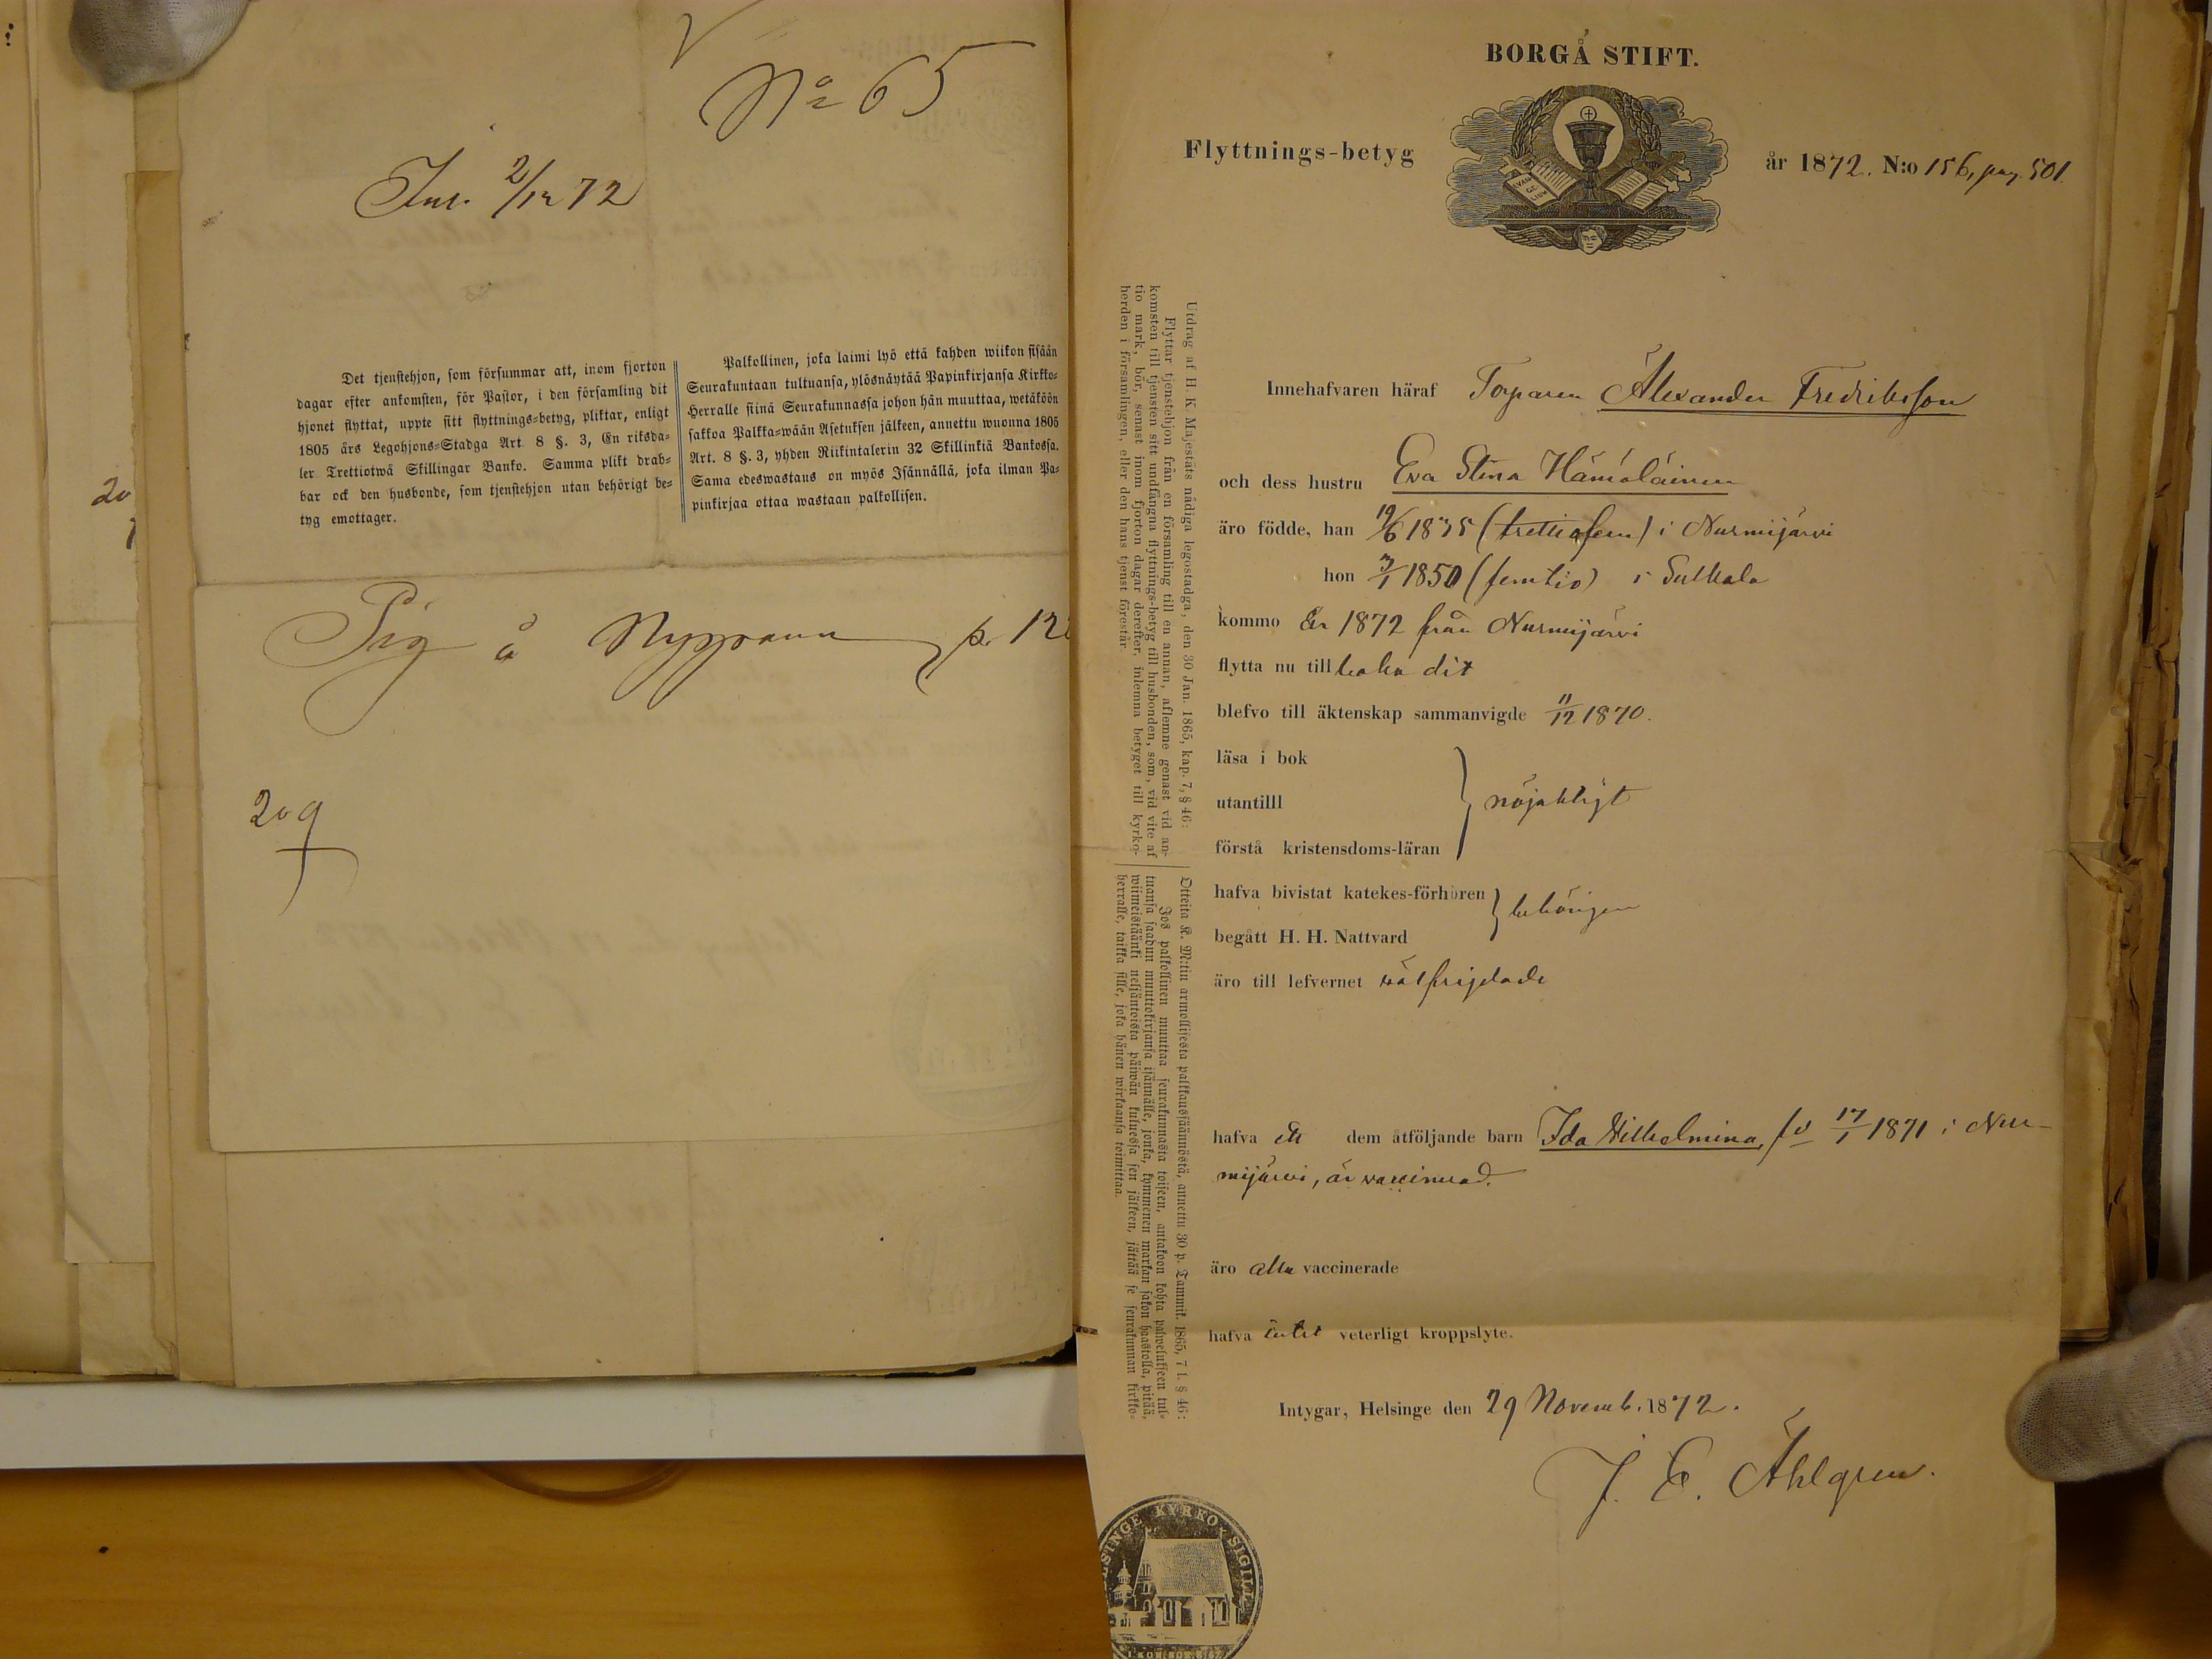 No 65
Ink. 2/12 72
Det tjenstehjon, som försummar att, inom fjorton
dagar efter ankomsten, för Pastor, i den församling dit
hjonet flyttat, uppte sitt flyttnings=betyg, pliktar, enligt
1805 års Legohjons=Stadga Art 8 §. 3, En riksda=
ler Trettiotwå Skillingar Banko. Samma plikt drab=
bar ock den husbonde, som tjenstehjon utan behörigt be=
tyg emottager.
Palkollinen, joka laimi lyö että kahden wiikon sisään
Seurakuntaan tultuansa, ylösnäytää Papinkirjansa Kirkko=
Herralle siinä Seurakunnassa johon hän muuttaa, wetäköön
sakkoa Palkka=wään Asetuksen jälkeen, annettu wuonna 1805
Art. 8 §. 3, yhden Riikintalerin 32 Skillinkiä Bankossa.
Sama edeswastaus on myös Isännällä, joka ilman Pa=
pinkirjaa ottaa wastaan palkollisen.
Pig å Nyppann p. 12
209
20
BORGÅ STIFT.
Flyttnings-betyg
EVAN GE LIUM
år 1872. N:o 156, pag. 501.
Utdrag af H K Majestäts nådiga legostadga, den 30 Jan. 1865, kap. 7, § 46:
Flyttar tjenstehjon från en församling till en annan, aflemne genast vid an-
komsten till tjensten sitt undfångna flyttnings-betyg till husbonden, som, vid vite af
tio mark, bör, senast inom fjorton dagar derefter, inlemna betyget till kyrko-
herden i församlingen, eller den hans tjenst förestår.
Otteita K. M:tin armollisesta palkkaussäännöstä, annettu 30 p. Tammik. 1865, 7 l. § 46:
Jos palkollinen muuttaa seurakunnasta toiseen, antakoon kohta palwelukseen tul=
tuansa saadun muuttokirjansa isännälle, jonka, kymmenen markan sakon haastolla, pitää,
wiimeistäänki neljäntoista päiwän kuluessa sen jälkeen, jättää se seurakunnan kirkko=
herralle, taikka sille, joka hänen wirkaansa toimittaa.
Innehafvaren häraf Torparen Alexander Fredriksson
och dess hustru Eva Stina Hämäläinen
äro födde, han 19/6 1835 (trettiofem) i Nurmijärvi
hon 3/1 1850 (femtio) i
kommo år 1872 från Nurmijärvi
flytta nu tillbaka dit
blefvo till äktenskap sammanvigde 11/12 1870.
läsa i bok
utantilll
förstå kristensdoms-läran
nöjaktligt
hafva bivistat katekes-förhören
begått H. H. Nattvard
behörigen
äro till lefvernet välfrejdade
hafva ett dem åtföljande barn Ida Wilhelmina, fö 17/1 1871 i Nur-
mijärvi, är vaccinerad.
äro alla vaccinerade
hafva intet veterligt kroppslyte.
Intygar, Helsinge den 29 Novemb. 1872.
J. E. Åhlgren.
SINGE KYRKO SIGILL